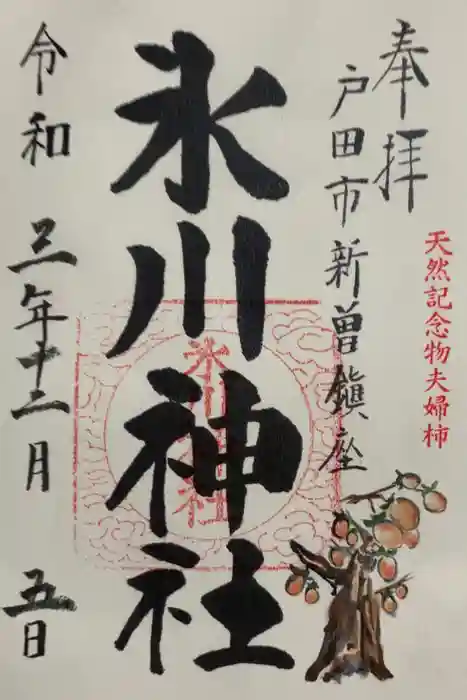 奉拝
戸田市新曽鎮座
天然記念物夫婦柿
氷川神社
氷川神社
令和三年十二月五日